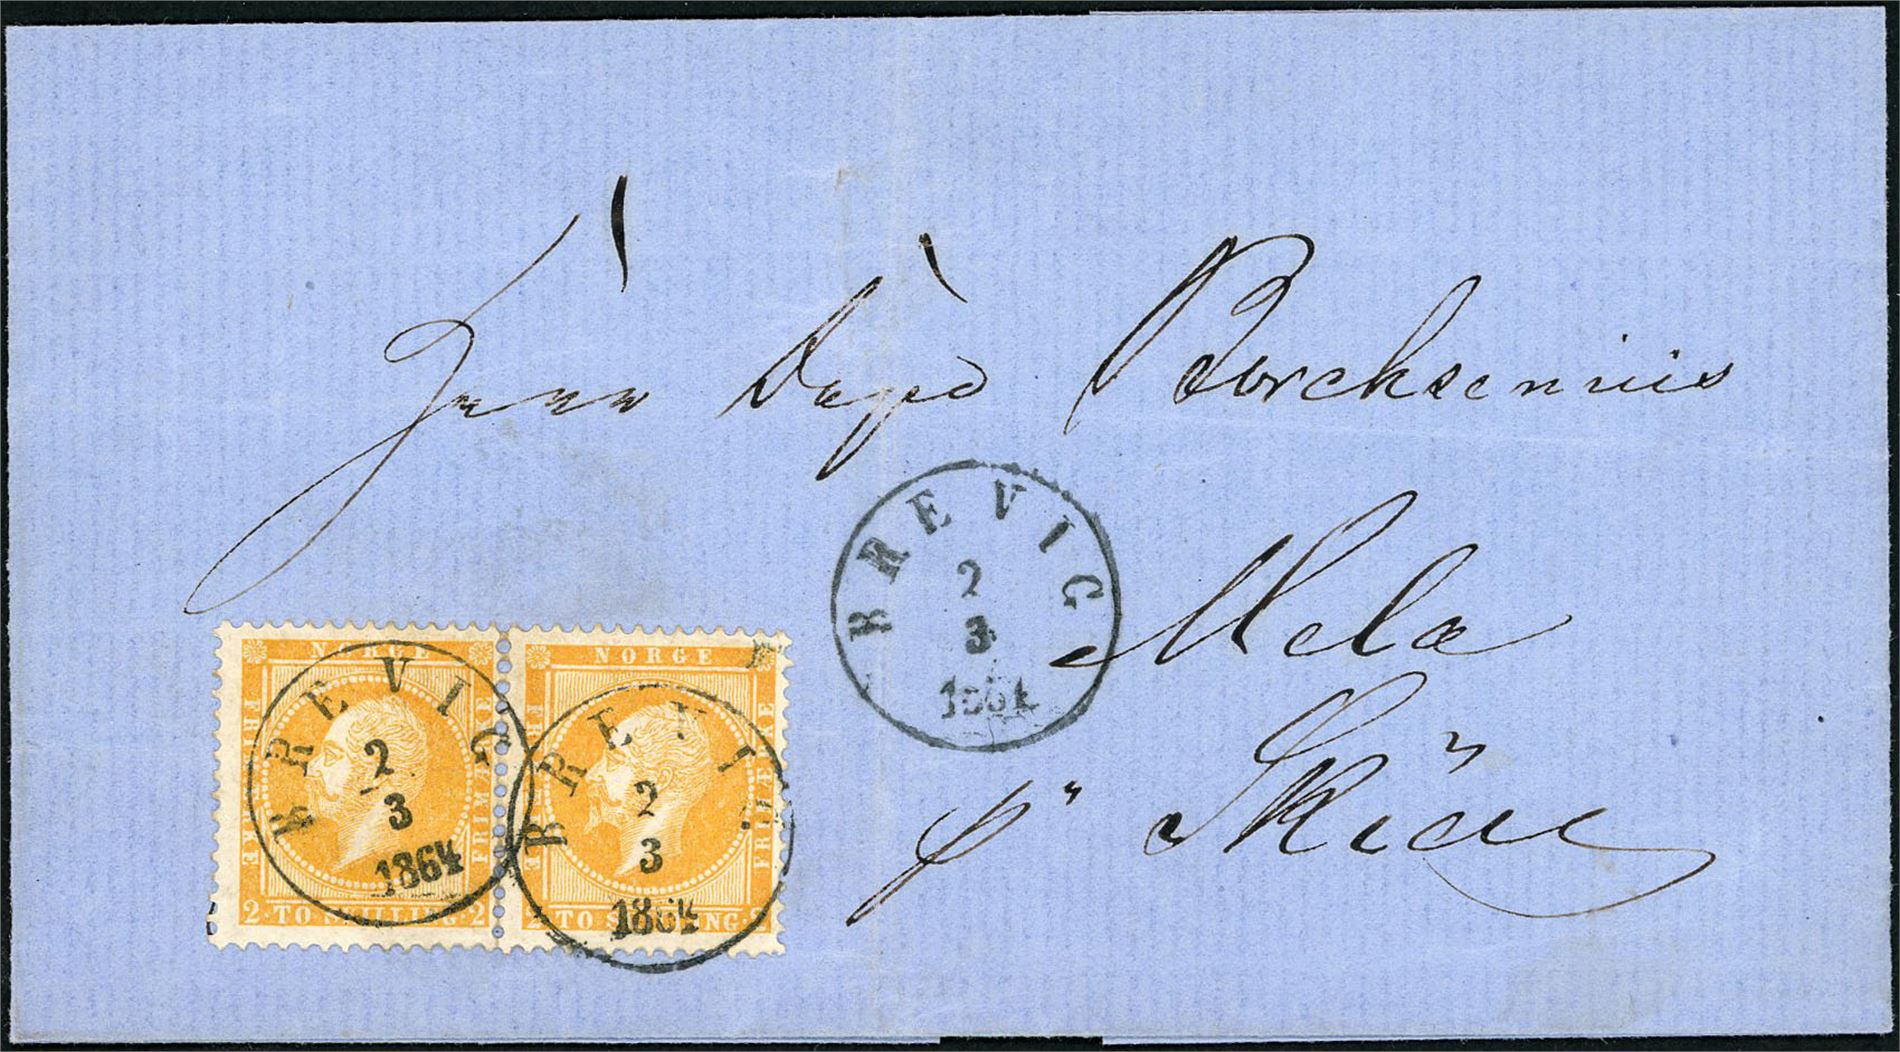 Herr Borchsenius
Mela
p" Skien
BREVIG
2
3
1864
NORGE
FRIMÆRKE
FRIMÆRKE
2 · TO SKILLING · 2
BREVIG
2
3
1864
NORGE
FRIMÆRKE
FRIMÆRKE
2 · TO SKILLING · 2
BREVIG
2
3
1864